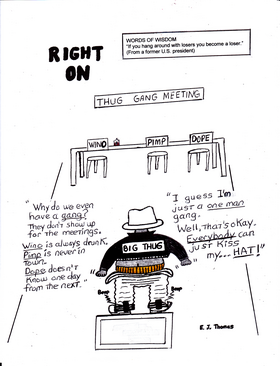 RIGHT
ON
WORDS OF WISDOM:
"If you hang around with losers you become a loser."
(From a former U.S. president)
THUG GANG MEETING
WINO
PIMP
DOPE
"Why do we even
have a gang?
They don't show up
for the meetings.
Wino is always drunk,
Pimp is never in
town.
Dope doesn't
know one day
from the next."
"I guess I'm
just a one man
gang.
Well, that's okay.
Everybody can
just kiss
my... HAT!"
BIG THUG
Bump
Bump
E. J. Thomas